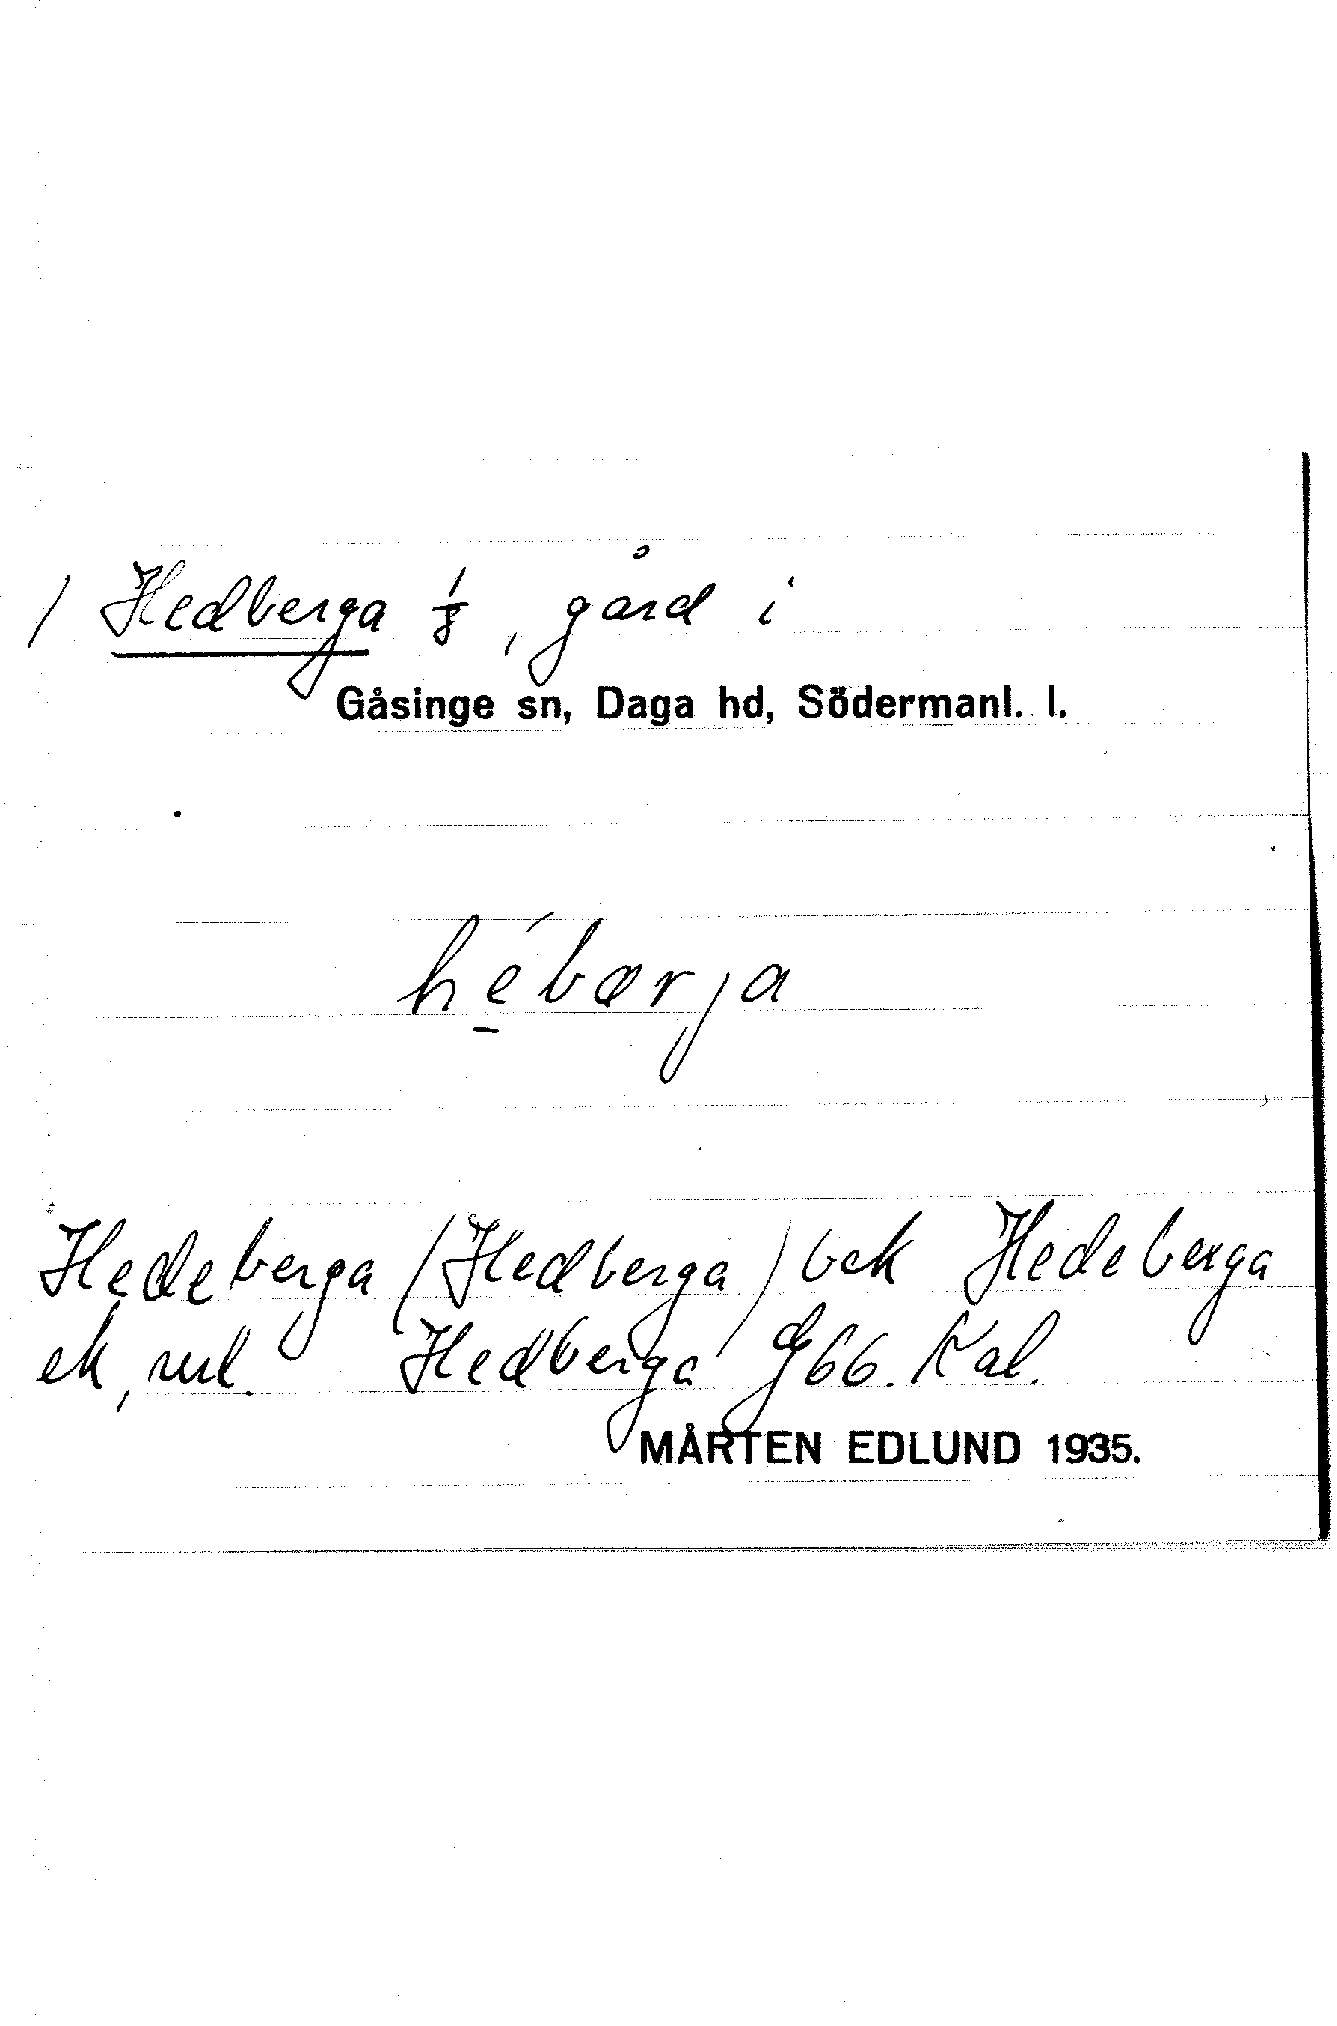 / Hedberga 1/8, gård i
Gåsinge sn, Daga hd, Södermanl. l.
hébærja
Hedeberga (Hedberga) bek Hedeberga
ek, rul. Hedberga G66. Kal.
MÅRTEN EDLUND 1935.